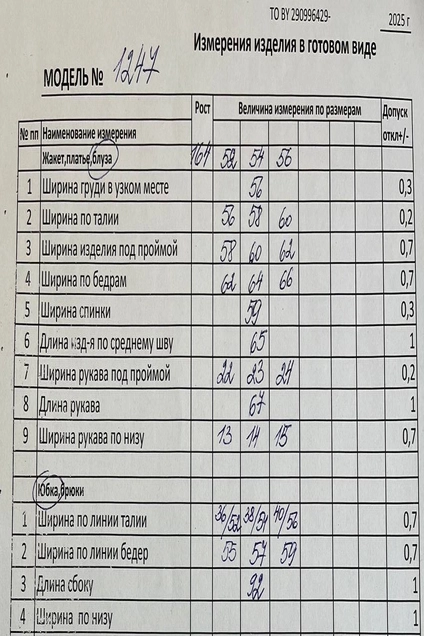 ТО BY 290996429- 2025 г
Измерения изделия в готовом виде
МОДЕЛЬ № 1247
№ пп Наименование измерения Рост Величина измерения по размерам Допуск откл+/-
Жакет,платье,блуза 164 52 54 56
1 Ширина груди в узком месте 56 0,3
2 Ширина по талии 56 58 60 0,2
3 Ширина изделия под проймой 58 60 62 0,7
4 Ширина по бедрам 62 64 66 0,7
5 Ширина спинки 59 0,3
6 Длина изд-я по среднему шву 65 1
7 Ширина рукава под проймой 22 23 24 0,2
8 Длина рукава 67 1
9 Ширина рукава по низу 13 14 15 0,7
Юбка,брюки
1 Ширина по линии талии 36/52 38/54 40/56 0,7
2 Ширина по линии бедер 55 57 59 0,7
3 Длина сбоку 92 1
4 Ширина по низу 1